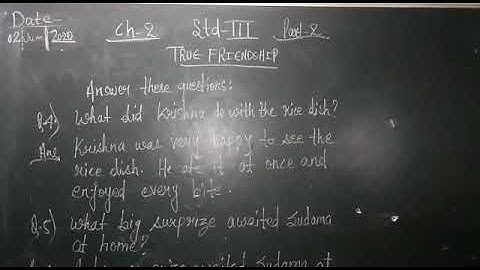 Date- Ch-2 Std-III Part-2
02|Jun|2020
TRUE FRIENDSHIP
Answer these questions:
Q.4) What did Krishna do with the rice dish?
Ans Krishna was very happy to see the
rice dish. He ate it at once and
enjoyed every bite.
Q.5) What big surprize awaited Sudama
at home?